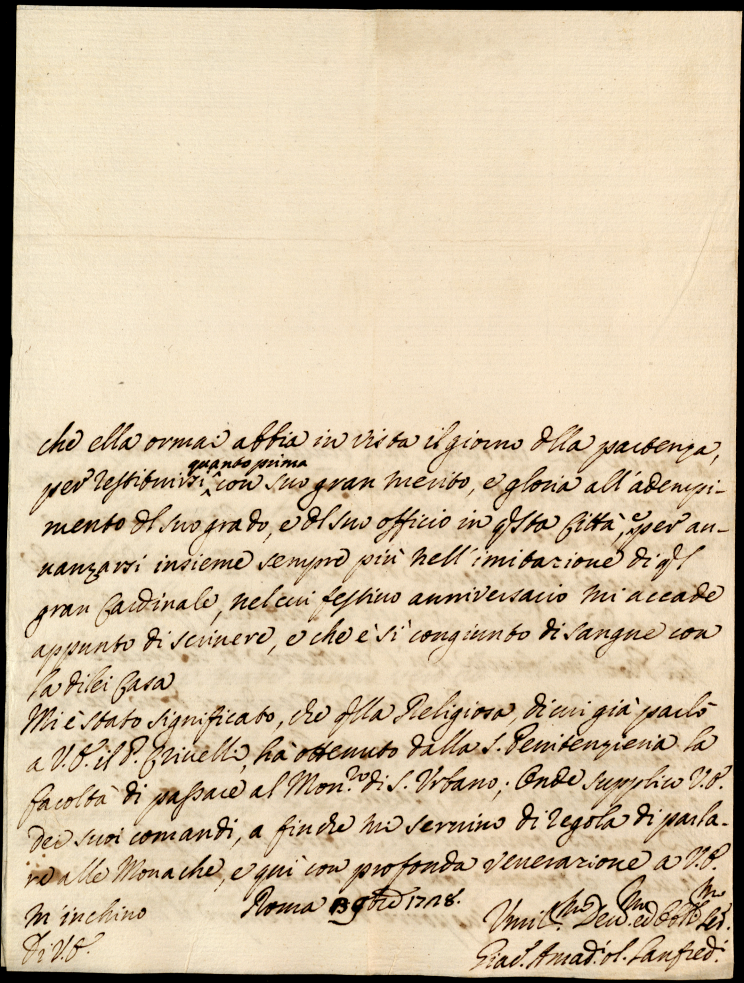 che ella ormai abbia in vista il giorno dlla partenza,
quanto prima
per restituirsi con suo gran merito, e gloria all'adempi-
mento dl suo grado, e dl suo officio in qsta Città, e per au-
uanzarsi insieme sempre più nell'imitazione di ql
gran Cardinale, nel cui festiuo anniversario mi accade
appunto di scriuere, e che è sì congiunto di sangue con
la di lei Casa
Mi è stato significato, che qlla Religiosa, di cui già parlò
a V.E. il P. Criuelli, hà ottenuto dalla S. Penitenzieria la
facoltà di passare al Mon.ro di S. Vrbano; Onde supplico V.E.
dei suoi comandi, a finche mi seruino di regola di parla-
re alle Monache, e quì con profonda venerazione a V.E.
m'inchino Roma 9bre 1728.
Di V.E. Vmil.mo Deu.mo ed Obb.mo Ser.
Giac. Amad. Lanfred.